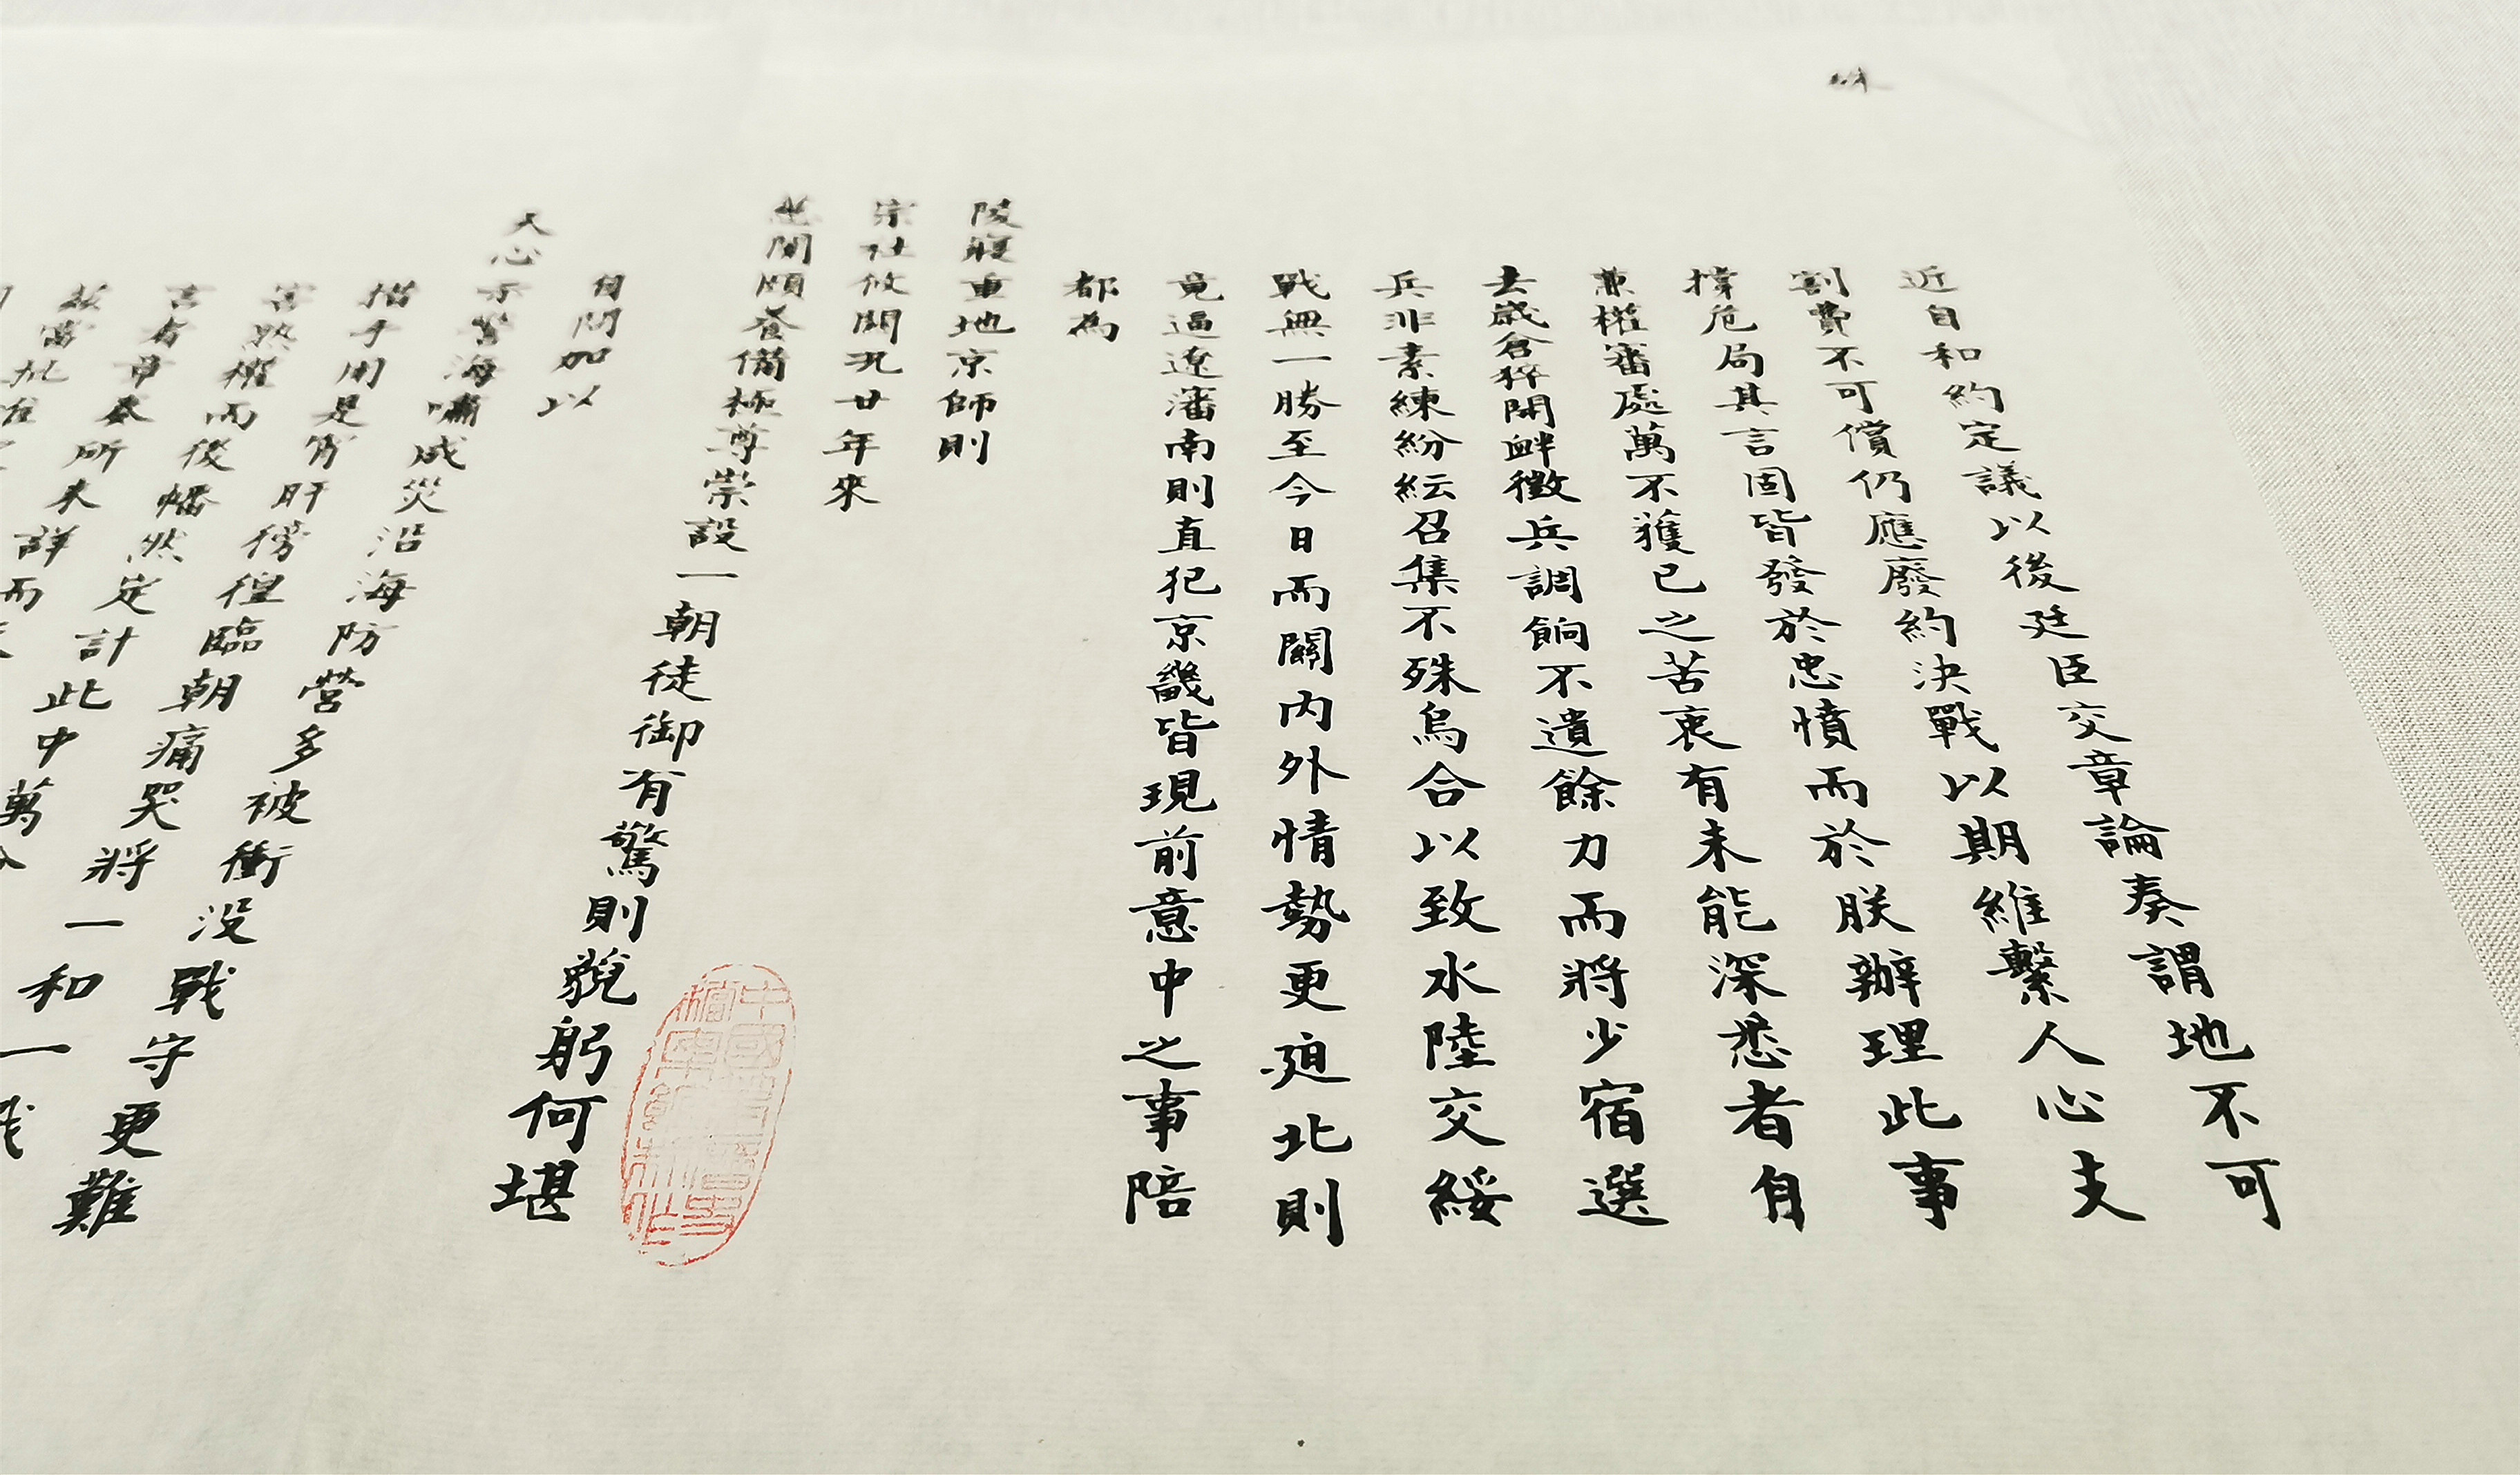 近自和約定議以後廷臣交章論奏謂地不可
割費不可償仍應廢約決戰以期維繫人心支
撐危局其言固皆發於忠憤而於朕辦理此事
兼權審處萬不獲已之苦衷有未能深悉者自
去歲倉猝開衅徵兵調餉不遺餘力而將少宿選
兵非素練紛紜召集不殊烏合以致水陸交綏
戰無一勝至今日而關內外情勢更迫北則
竟逼遼瀋南則直犯京畿皆現前意中之事陪
都為
陵寢重地京師則
宗社攸關況廿年來
慈闈頤養備極尊崇設一朝徒御有驚則藐躬何堪
自問加以
天心示警海嘯成災沿海防營多被衝沒戰守更難
措手用是宵旰徬徨臨朝痛哭將一和一戰
害熟權而後幡然定計此中萬分
言者章奏所未詳而